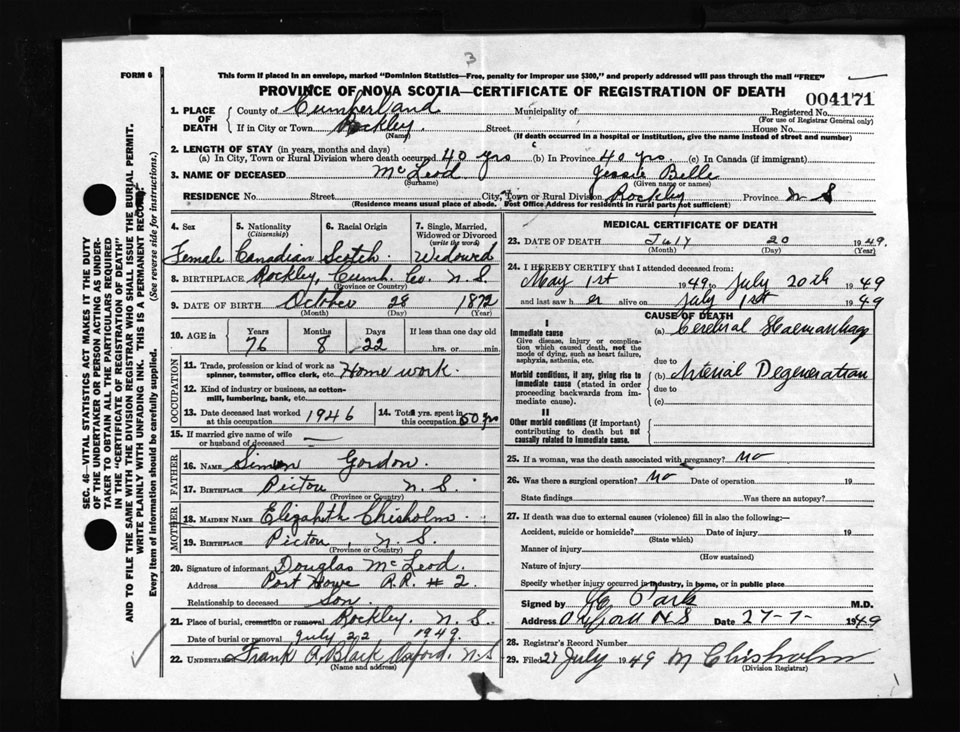 3
FORM 6
This form if placed in an envelope, marked "Dominion Statistics—Free, penalty for improper use $300," and properly addressed will pass through the mail "FREE"
PROVINCE OF NOVA SCOTIA—CERTIFICATE OF REGISTRATION OF DEATH
004171
1. PLACE OF DEATH { County of Cumberland Municipality of Registered No.
(For use of Registrar General only)
If in City or Town Rockley Street House No.
(Name) (If death occurred in a hospital or institution, give the name instead of street and number)
2. LENGTH OF STAY (in years, months and days)
(a) In City, Town or Rural Division where death occurred 40 yrs (b) In Province 40 yrs. (c) In Canada (if immigrant)
3. NAME OF DECEASED McLeod. Jessie Belle
(Surname) (Given name or names)
RESIDENCE No. Street City, Town or Rural Division Rockley Province N S
(Residence means usual place of abode. Post Office Address for residents in rural parts not sufficient)
4. Sex
Female
5. Nationality
(Citizenship)
Canadian
6. Racial Origin
Scotch
7. Single, Married, Widowed or Divorced
(write the word)
Widowed
8. BIRTHPLACE Rockley, Cumb. Co. N. S.
(Province or Country)
9. DATE OF BIRTH October 28 1872
(Month) (Day) (Year)
10. AGE in Years Months Days If less than one day old
76 8 22 hrs. or min.
OCCUPATION
11. Trade, profession or kind of work as spinner, teamster, office clerk, etc. Home work.
12. Kind of industry or business, as cotton-mill, lumbering, bank, etc.
13. Date deceased last worked at this occupation 1946
14. Total yrs. spent in this occupation 50 yrs
15. If married give name of wife or husband of deceased —
FATHER
16. NAME Simon Gordon.
17. BIRTHPLACE Pictou N. S.
(Province or Country)
MOTHER
18. MAIDEN NAME Elizabeth Chisholm.
19. BIRTHPLACE Pictou, N. S.
(Province or Country)
20. Signature of informant Douglas McLeod.
Address Port Howe R.R. # 2.
Relationship to deceased Son.
21. Place of burial, cremation or removal Rockley. N. S.
Date of burial or removal July 22 1949.
22. UNDERTAKER Frank A. Black Oxford, N.S
(Name and address)
MEDICAL CERTIFICATE OF DEATH
23. DATE OF DEATH July 20 1949.
(Month) (Day) (Year)
24. I HEREBY CERTIFY that I attended deceased from:
May 1st 1949 to July 20th 1949
and last saw her alive on July 1st 1949
CAUSE OF DEATH
I
Immediate cause
Give disease, injury or complication which caused death, not the mode of dying, such as heart failure, asphyxia, asthenia, etc.
(a) Cerebral Haemorrhage
due to
Morbid conditions, if any, giving rise to immediate cause (stated in order proceeding backwards from immediate cause).
(b) Arterial Degeneration
due to
(c)
II
Other morbid conditions (if important) contributing to death but not causally related to immediate cause.
25. If a woman, was the death associated with pregnancy? No
26. Was there a surgical operation? No Date of operation 19
State findings Was there an autopsy?
27. If death was due to external causes (violence) fill in also the following:—
Accident, suicide or homicide? Date of injury 19
(State which)
Manner of injury
(How sustained)
Nature of injury
Specify whether injury occurred in industry, in home, or in public place
Signed by Park M.D.
Address Oxford N S Date 27-7-1949
28. Registrar's Record Number
29. Filed 27 July 1949 M Chisholm
(Division Registrar)
SEC. 46—VITAL STATISTICS ACT MAKES IT THE DUTY
OF THE UNDERTAKER OR PERSON ACTING AS UNDER-
TAKER TO OBTAIN ALL THE PARTICULARS REQUIRED
IN THE "CERTIFICATE OF REGISTRATION OF DEATH"
AND TO FILE THE SAME WITH THE DIVISION REGISTRAR WHO SHALL ISSUE THE BURIAL PERMIT.
WRITE PLAINLY WITH UNFADING INK. THIS IS A PERMANENT RECORD.
Every item of information should be carefully supplied. (See reverse side for instructions.)